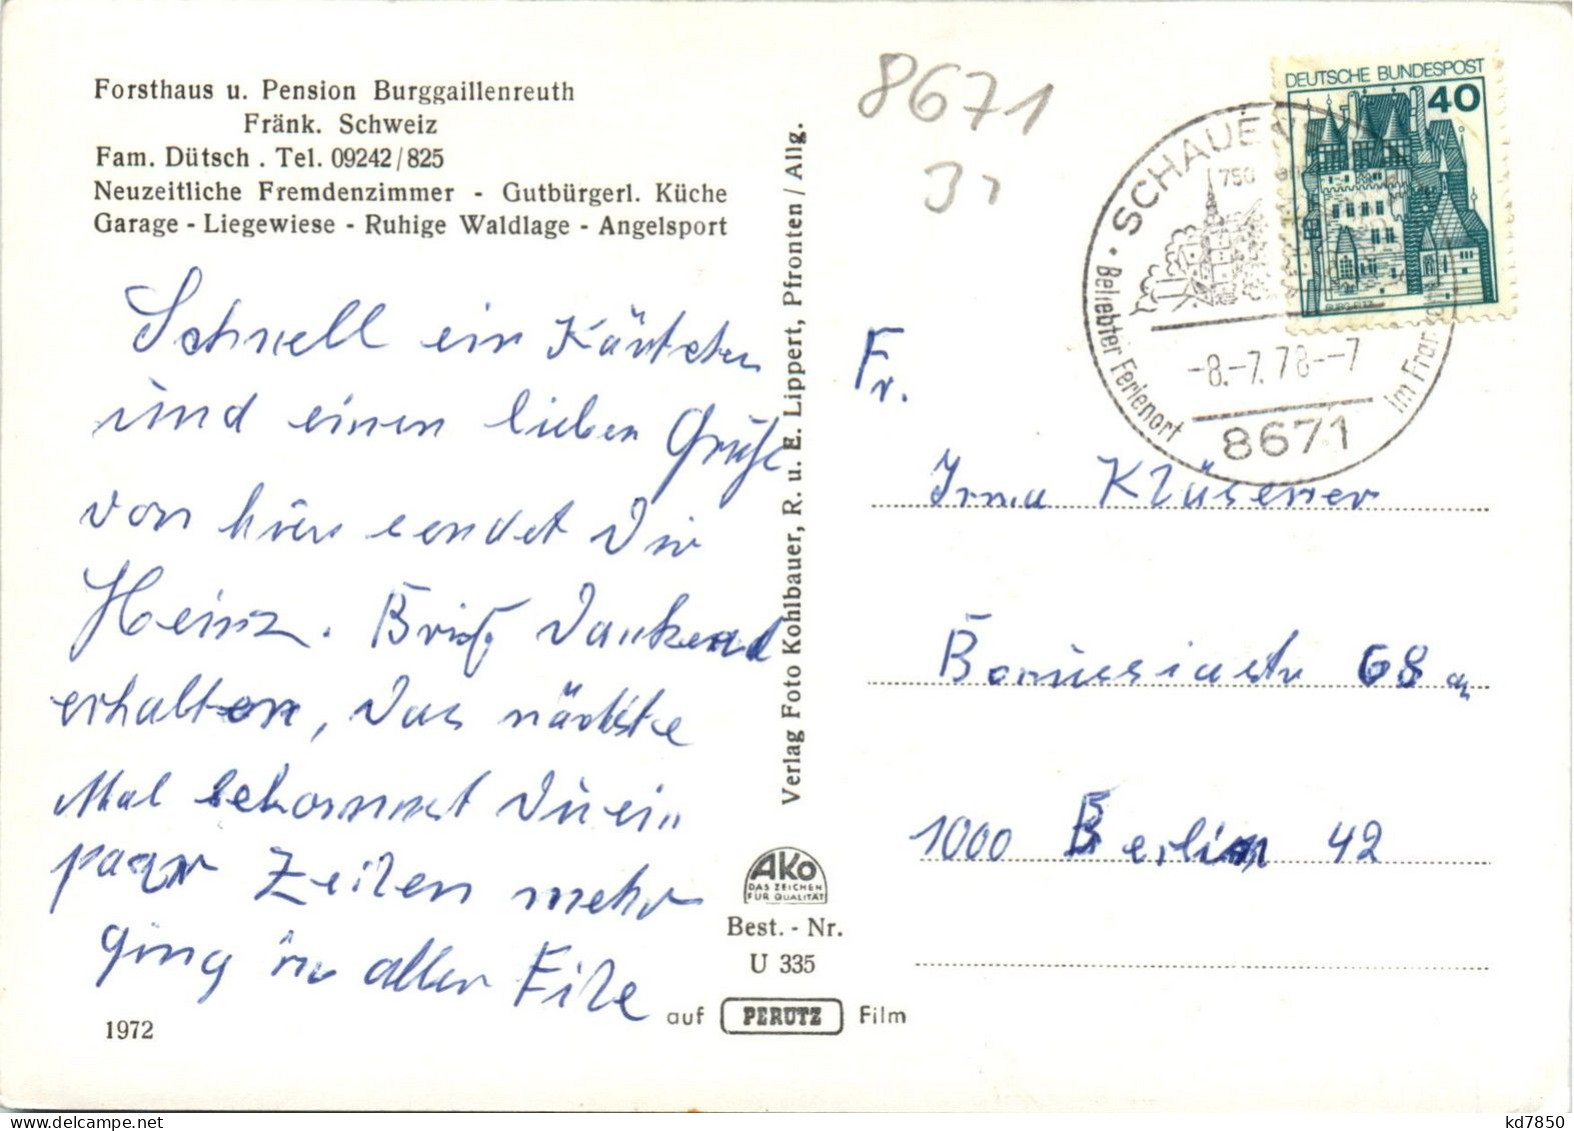 Forsthaus u. Pension Burggaillenreuth
Fränk. Schweiz
Fam. Dütsch . Tel. 09242/825
Neuzeitliche Fremdenzimmer - Gutbürgerl. Küche
Garage - Liegewiese - Ruhige Waldlage - Angelsport
Schnell ein Kärtchen
und einen lieben Gruß
von hier sendet Dir
Heinz. Brief dankend
erhalten, das nächste
Mal bekommst Du ein
paar Zeilen mehr
ging in aller Eile
1972
Verlag Foto Kohlbauer, R. u. E. Lippert, Pfronten / Allg.
AKO
DAS ZEICHEN
FÜR QUALITÄT
Best. - Nr.
U 335
auf PERUTZ Film
8671
DEUTSCHE BUNDESPOST
40
BURG ELTZ
· SCHAUE
750
-8.-7.78--7
Beliebter Ferienort
im Fran
8671
Fr.
Irma Klüsener
Borussiastr 68 a
1000 Berlin 42
kd7850